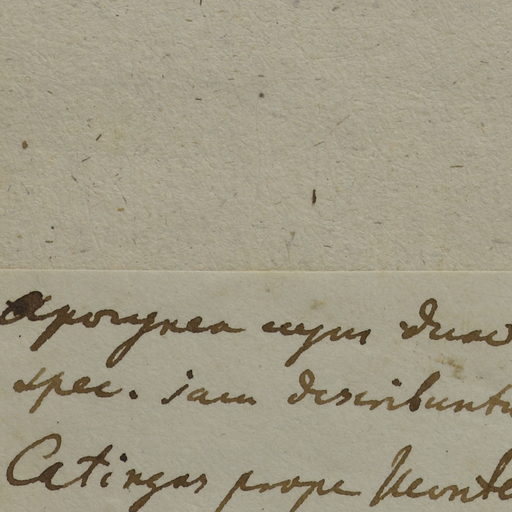 Apocynea cujus duae
spec. jam describuntu
Catingas prope Monte